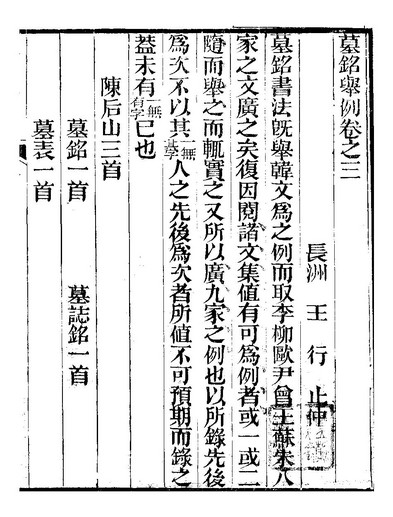 墓銘舉例卷之三
長洲 王 行 止仲
墓銘書法既舉韓文爲之例而取李柳歐尹曾王蘇朱八
家之文廣之矣復因閱諸文集値有可爲例者或一或二
隨而舉之而輒實之又所以廣九家之例也以所錄先後
爲次不以其一無其字人之先後爲次者所値不可預期而錄之
葢未有一無有字已也
陳后山三首
墓銘一首 墓誌銘一首
墓表一首